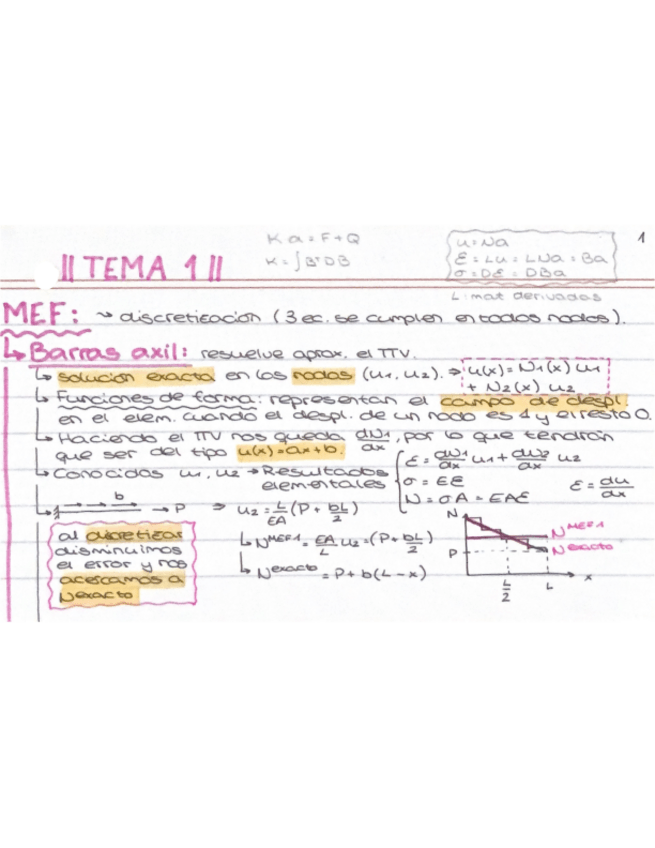 K a = F + Q
K = ∫ BᵀDB
u = Na
ε = Lu = LNa = Ba
σ = Dε = DBa
L: mat derivadas
1
|| TEMA 1 ||
MEF: ⤳ discretización (3 ec. se cumplen en todos nodos).
↳ Barras axil: resuelve aprox. el TTV.
↳ solución exacta en los nodos (u1, u2). ⇒ u(x) = N1(x) u1
+ N2(x) u2
↳ Funciones de forma: representan el campo de despl.
en el elem. cuando el despl. de un nodo es 1 y el resto 0.
↳ Haciendo el TTV nos queda dN1/dx, por lo que tendrán
que ser del tipo u(x) = ax + b.
↳ Conocidas u1, u2 → Resultados
elementales
ε = dN1/dx u1 + dN2/dx u2
σ = Eε
N = σA = EAε
ε = du/dx
b
→ P ⇒ u2 = L/EA (P + bL/2)
↳ N^MEF1 = EA/L u2 = (P + bL/2)
↳ N^exacto = P + b(L - x)
al discretizar
disminuimos
el error y nos
acercamos a
Nexacto
N
N^MEF1
P
N^exacto
L/2
L
x